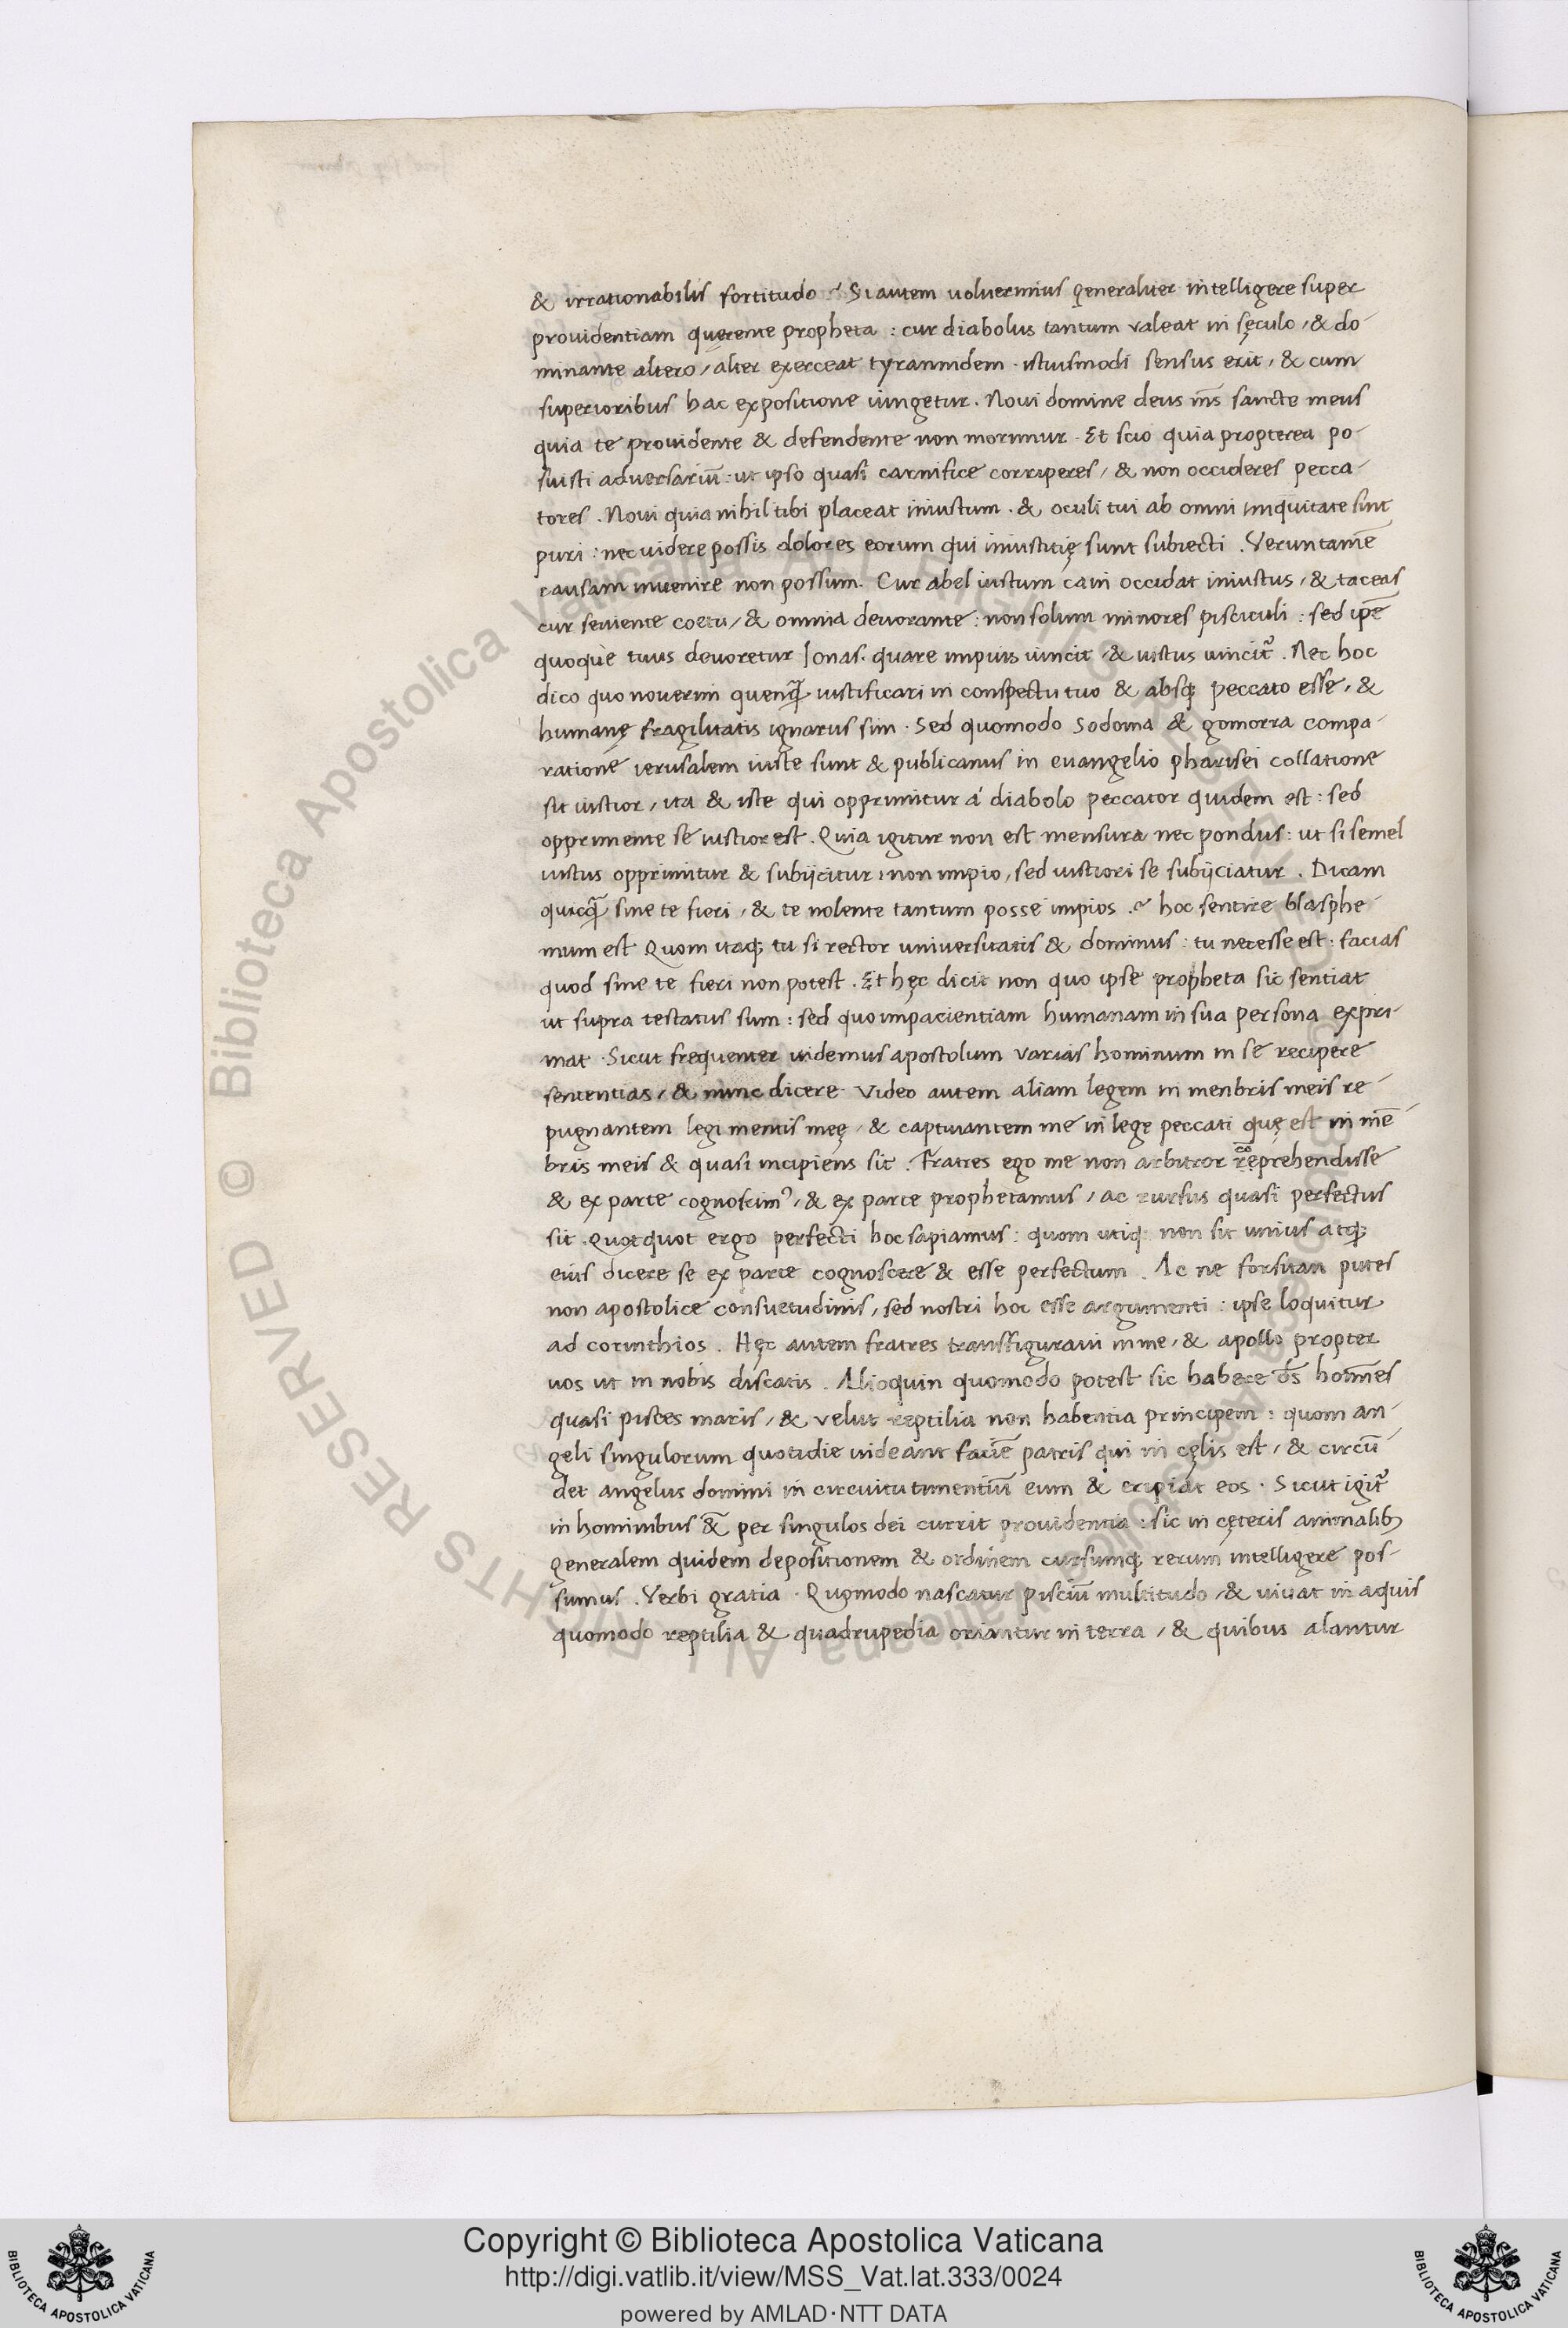 & irrationabilis fortitudo ? Si autem voluerimus generaliter intelligere super
providentiam querente propheta : cur diabolus tantum valeat in sęculo, & do-
minante altero, alter exerceat tyrannidem . istiusmodi sensus erit, & cum
superioribus hac expositione iungetur . Novi domine deus ms̄ sancte meus
quia te providente & defendente non morimur . Et scio quia propterea po-
suisti adversariū : ut ipso quasi carnifice corriperes, & non occideres pecca-
tores . Novi quia nihil tibi placeat iniustum . & oculi tui ab omni iniquitate sint
puri : nec videre possis dolores eorum qui iniustitię sunt subiecti . Veruntamē
causam invenire non possum . Cur abel iustum cain occidat iniustus, & taceas
cur seviente coetu, & omnia devorante : non solum minores pisciculi : sed ipē
quoque tuus devoretur Jonas . quare impius vincit, & iustus vincit᷑ . Nec hoc
dico quo noverim quenq̄ iustificari in conspectu tuo & absq; peccato esse, &
humanę fragilitatis ignarus sim . Sed quomodo Sodoma & gomorra compa-
ratione ierusalem iuste sunt & publicanus in evangelio pharisei collatione
sit iustior, ita & iste qui opprimitur á diabolo peccator quidem est : sed
opprimente se iustior est . Quia igitur non est mensura nec pondus : ut si semel
iustus opprimitur & subijcitur, non impio, sed iustiori se subijciatur . Dicam
quicq̄ sine te fieri, & te nolente tantum posse impios .? hoc sentire blasphe-
mum est Quom itaq; tu si rector universitatis & dominus : tu necesse est : facias
quod sine te fieri non potest . Et hęc dicit non quo ipse propheta sic sentiat
ut supra testatus sum : sed quo impacientiam humanam in sua persona expri-
mat . Sicut frequenter videmus apostolum varias hominum in se recipere
sententias, & nunc dicere Video autem aliam legem in menbris meis re-
pugnantem legi mentis meę, & captivantem me in lege peccati quę est in mē-
bris meis & quasi incipiens sit . Fratres ego me non arbitror cō reprehendisse
& ex parte cognoscimꝰ, & ex parte prophetamus, ac rursus quasi perfectus
sit . Quotquot ergo perfecti hoc sapiamus : quom utiq; non sit unius atq;
eius dicere se ex parte cognoscere & esse perfectum . Ac ne forsitan putes
non apostolice consuetudinis, sed nostri hoc esse argumenti : ipse loquitur
ad corinthios . Hęc autem fratres transfiguravi in me, & apollo propter
vos ut in nobis discatis . Alioquin quomodo potest sic habere ds̄ hoīnes
quasi pisces maris, & velut reptilia non habentia principem : quom an-
geli singulorum quotidie videant faciē patris qui in cęlis est, & circū
det angelus domini in circuitu timentiū eum & eripiat eos . Sicut igit᷑
in hominibus &̄ per singulos dei currit providentia : sic in cęteris animalibꝫ
generalem quidem depositionem & ordinem cursumq; rerum intelligere pos-
sumus . Verbi gratia . Quomodo nascatur pisciū multitudo, & vivat in aquis
quomodo reptilia & quadrupedia oriantur in terra, & quibus alantur
Biblioteca Apostolica Vaticana ALL RIGHTS RESERVED ©
Copyright © Biblioteca Apostolica Vaticana
http://digi.vatlib.it/view/MSS_Vat.lat.333/0024
powered by AMLAD·NTT DATA
BIBLIOTECA APOSTOLICA VATICANA
BIBLIOTECA APOSTOLICA VATICANA